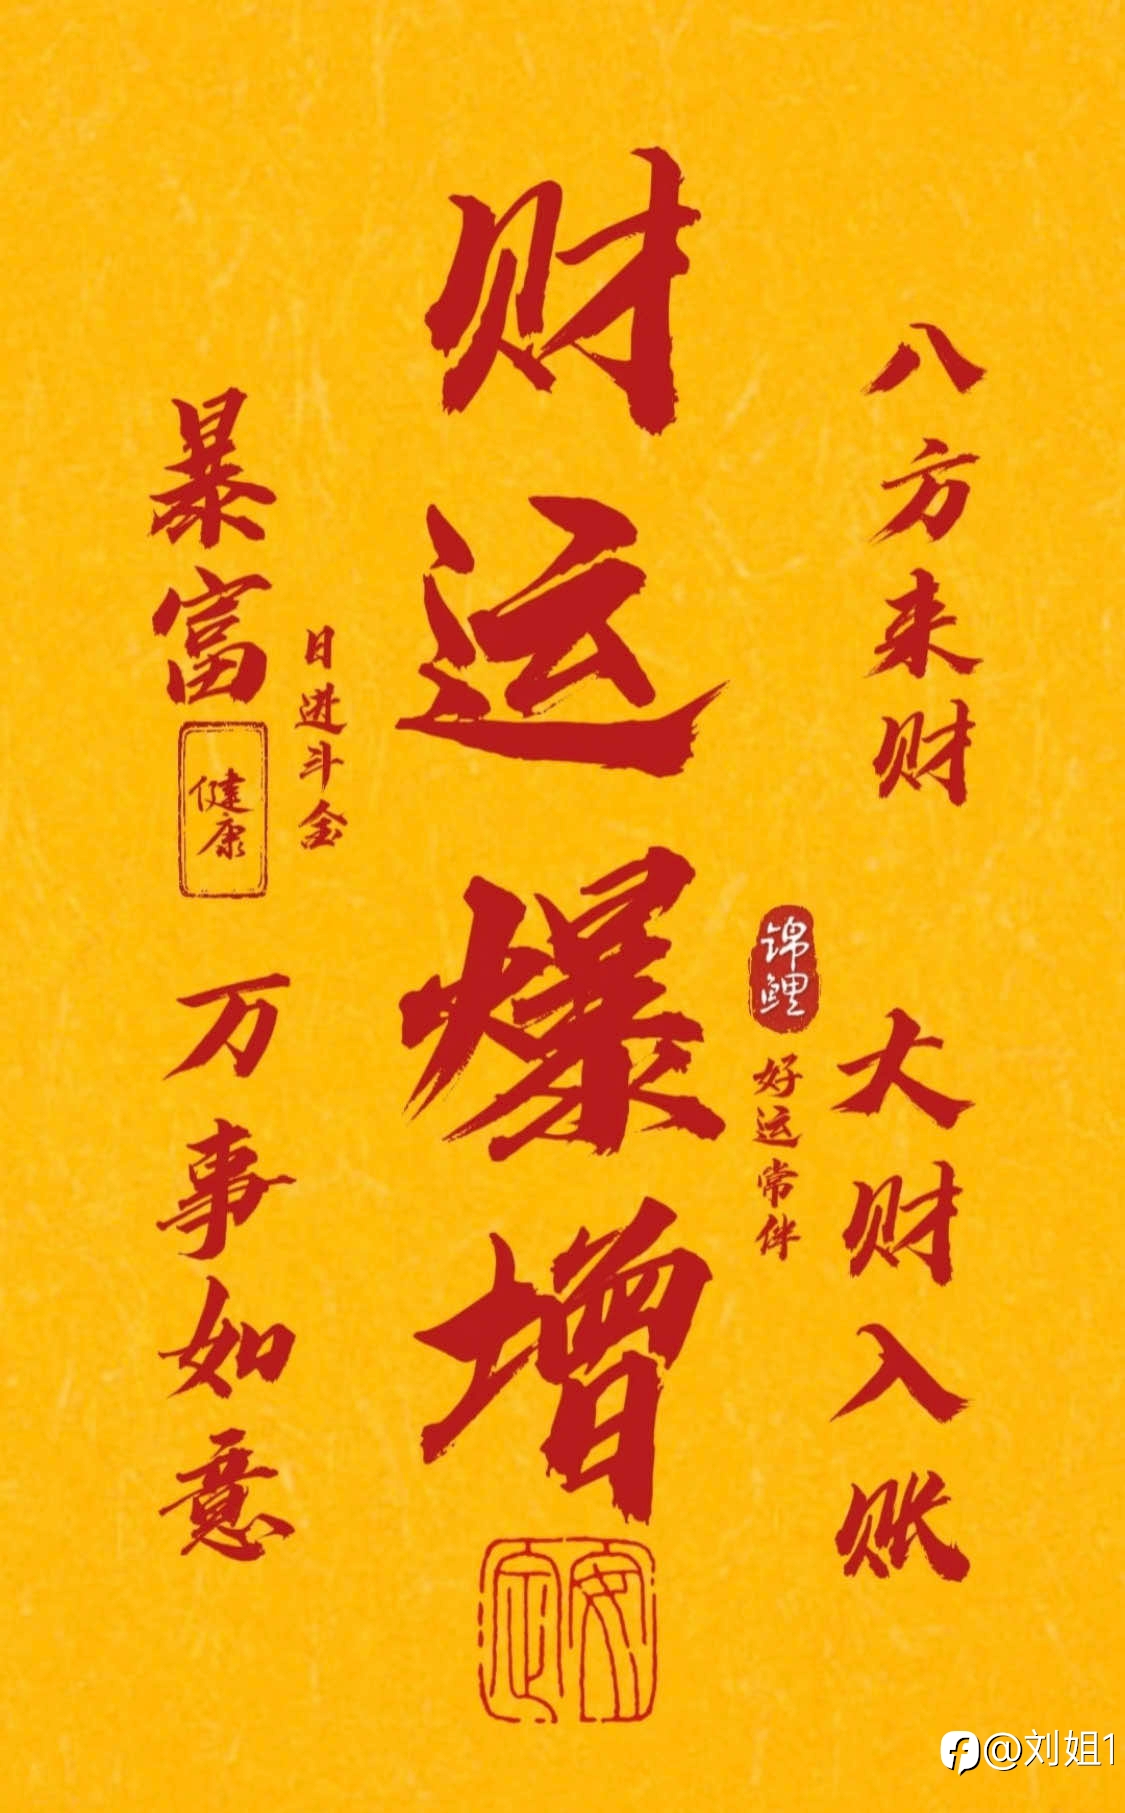 财运爆增
八方来财
大财入账
锦鲤
好运常伴
日进斗金
暴富
健康
万事如意
安定
@刘姐1